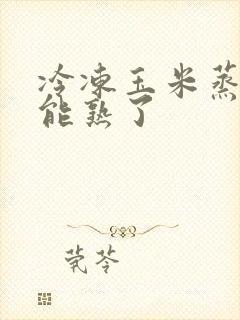 冷凍玉米蒸
能熟了
莞苓